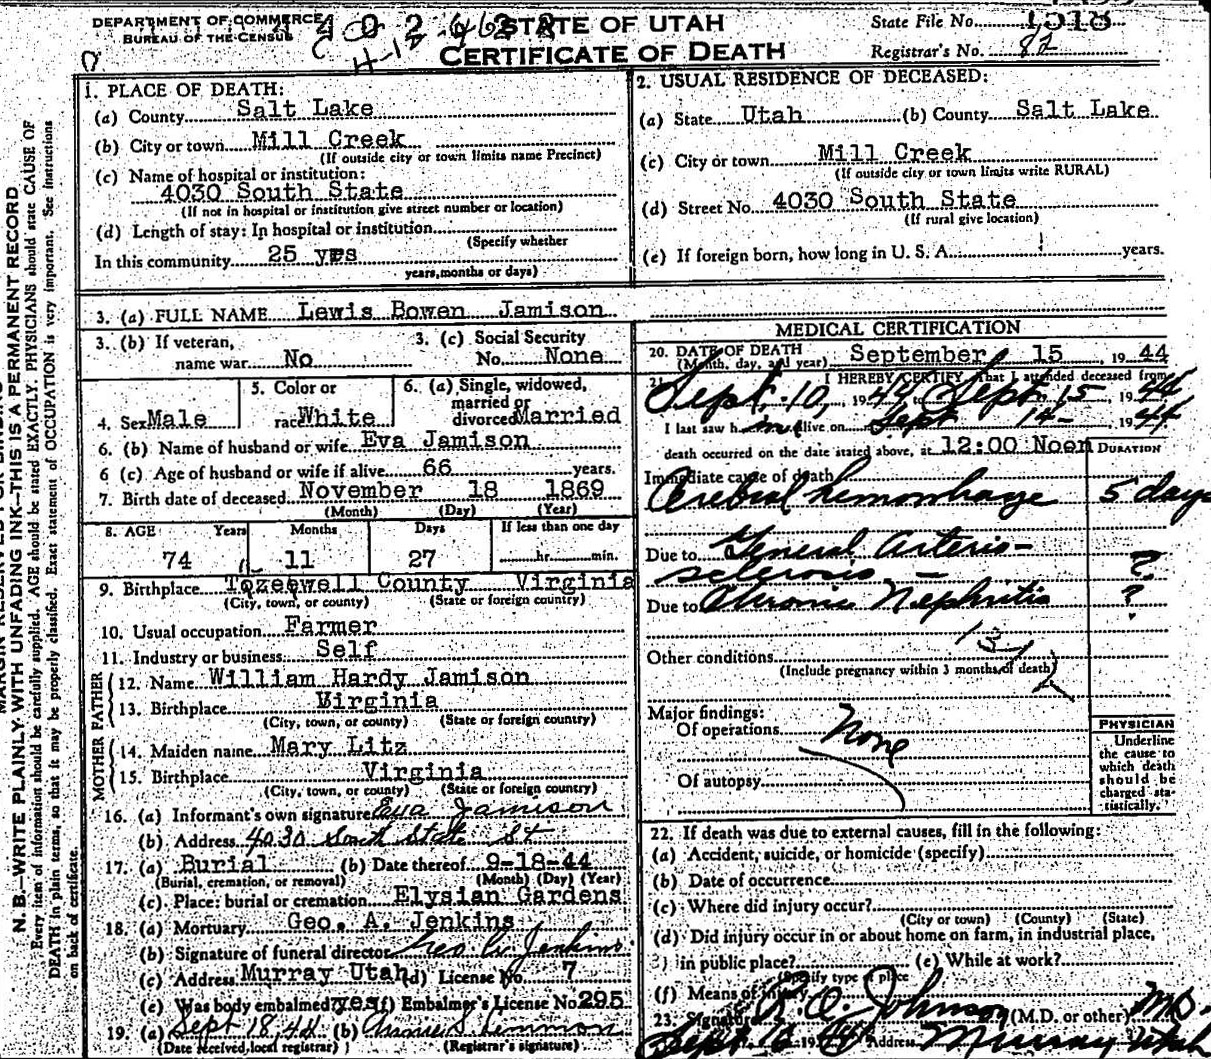 DEPARTMENT OF COMMERCE
BUREAU OF THE CENSUS
STATE OF UTAH
CERTIFICATE OF DEATH
State File No. 1518
Registrar's No. 82
1. PLACE OF DEATH:
(a) County Salt Lake
(b) City or town Mill Creek
(If outside city or town limits name Precinct)
(c) Name of hospital or institution:
4030 South State
(If not in hospital or institution give street number or location)
(d) Length of stay: In hospital or institution
(Specify whether
In this community 25 yrs
years, months or days)
2. USUAL RESIDENCE OF DECEASED:
(a) State Utah (b) County Salt Lake
(c) City or town Mill Creek
(If outside city or town limits write RURAL)
(d) Street No. 4030 South State
(If rural give location)
(e) If foreign born, how long in U. S. A. years.
3. (a) FULL NAME Lewis Bowen Jamison
3. (b) If veteran, name war No
3. (c) Social Security No. None
4. Sex Male
5. Color or race White
6. (a) Single, widowed, married or divorced Married
6. (b) Name of husband or wife Eva Jamison
6 (c) Age of husband or wife if alive 66 years.
7. Birth date of deceased November 18 1869
(Month) (Day) (Year)
8. AGE Years Months Days If less than one day
74 11 27 hr. min.
9. Birthplace Tozeewell County Virginia
(City, town, or county) (State or foreign country)
10. Usual occupation Farmer
11. Industry or business Self
FATHER
12. Name William Hardy Jamison
13. Birthplace Virginia
(City, town, or county) (State or foreign country)
MOTHER
14. Maiden name Mary Litz
15. Birthplace Virginia
(City, town, or county) (State or foreign country)
16. (a) Informant's own signature Eva Jamison
(b) Address 4030 South State St
17. (a) Burial (b) Date thereof 9-18-44
(Burial, cremation, or removal) (Month) (Day) (Year)
(c) Place: burial or cremation Elysian Gardens
18. (a) Mortuary Geo. A. Jenkins
(b) Signature of funeral director Geo A Jenkins
(c) Address Murray Utah (d) License No. 7
(e) Was body embalmed? yes (f) Embalmer's License No. 295
19. (a) Sept 18, 44 (b)
(Date received local registrar) (Registrar's signature)
MEDICAL CERTIFICATION
20. DATE OF DEATH September 15, 1944
(Month, day, and year)
21. I HEREBY CERTIFY That I attended deceased from
Sept. 10, 1944, to Sept. 15, 1944
I last saw him alive on Sept 14 - 1944
death occurred on the date stated above, at 12:00 Noon DURATION
Immediate cause of death
Cerebral hemorrhage 5 days
Due to General Arterio-
sclerosis - ?
Due to Chronic Nephritis ?
Other conditions 131
(Include pregnancy within 3 months of death)
Major findings:
Of operations None
Of autopsy
PHYSICIAN
Underline
the cause to
which death
should be
charged sta-
tistically.
22. If death was due to external causes, fill in the following:
(a) Accident, suicide, or homicide (specify)
(b) Date of occurrence
(c) Where did injury occur?
(City or town) (County) (State)
(d) Did injury occur in or about home on farm, in industrial place,
in public place? (e) While at work?
(Specify type of place
(f) Means of injury
23. Signature R. O. Johnson (M.D. or other) M.D.
Sept 16 1944 Address Murray Utah
N. B.—WRITE PLAINLY WITH UNFADING INK—THIS IS A PERMANENT RECORD
Every item of information should be carefully supplied. AGE should be stated EXACTLY. PHYSICIANS should state CAUSE OF
DEATH in plain terms, so that it may be properly classified. Exact statement of OCCUPATION is very important. See instructions
on back of certificate.